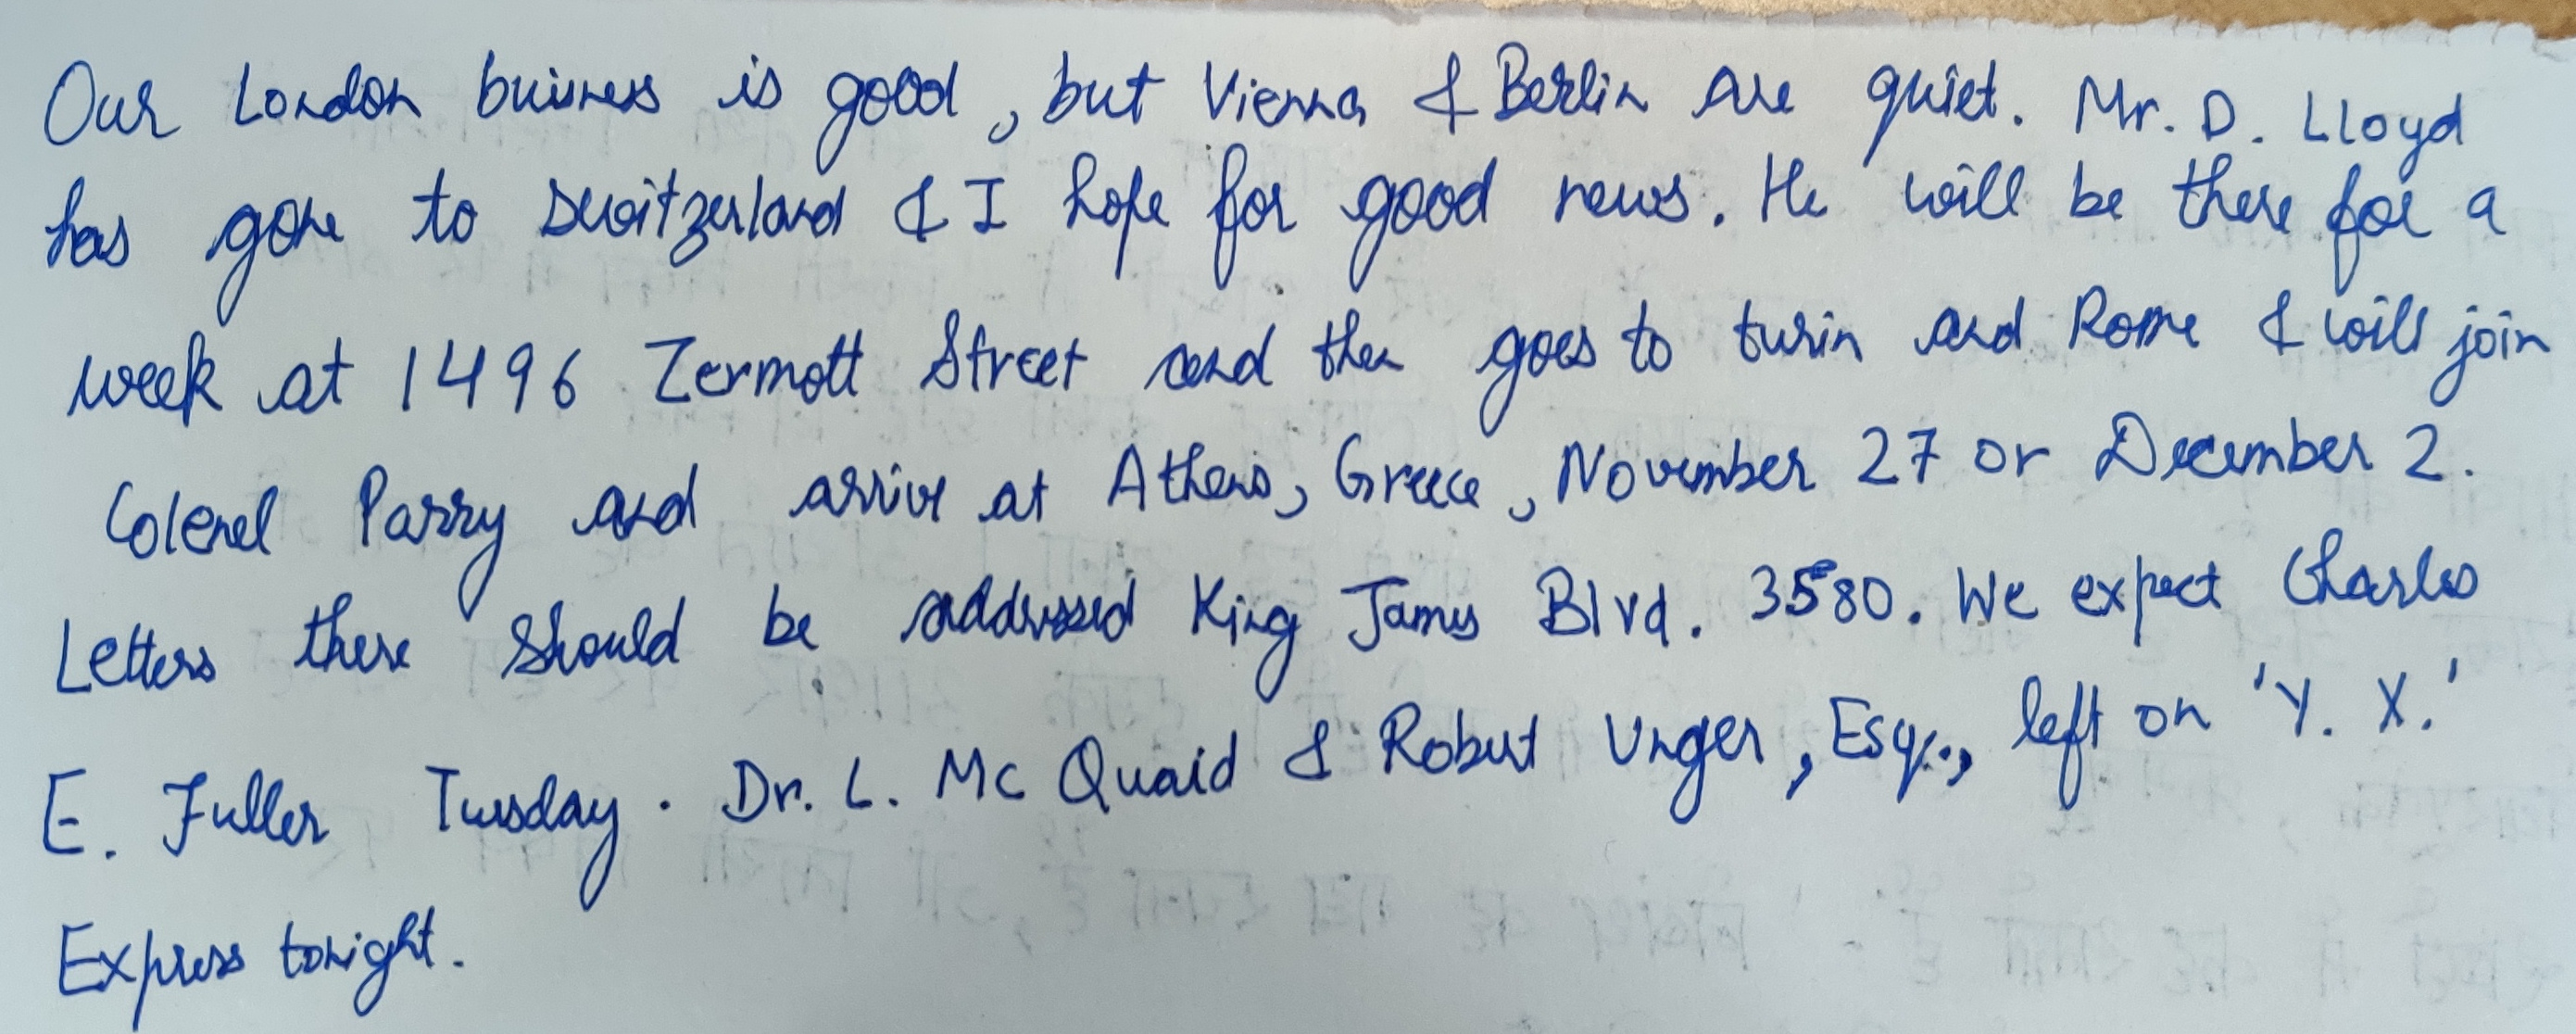 Our London buisness is good, but Vienna & Berlin are quiet. Mr. D. Lloyd
has gone to switzerland & I hope for good news. He will be there for a
week at 1496 Zermott Street and then goes to turin and Rome & will join
Colenel Parry and arrive at Athens, Greece, November 27 or December 2.
Letters there should be addressed King James Blvd. 3580. We expect Charles
E. Fuller Tuesday. Dr. L. Mc Quaid & Robert Unger, Esq., left on 'Y. X.'
Express tonight.